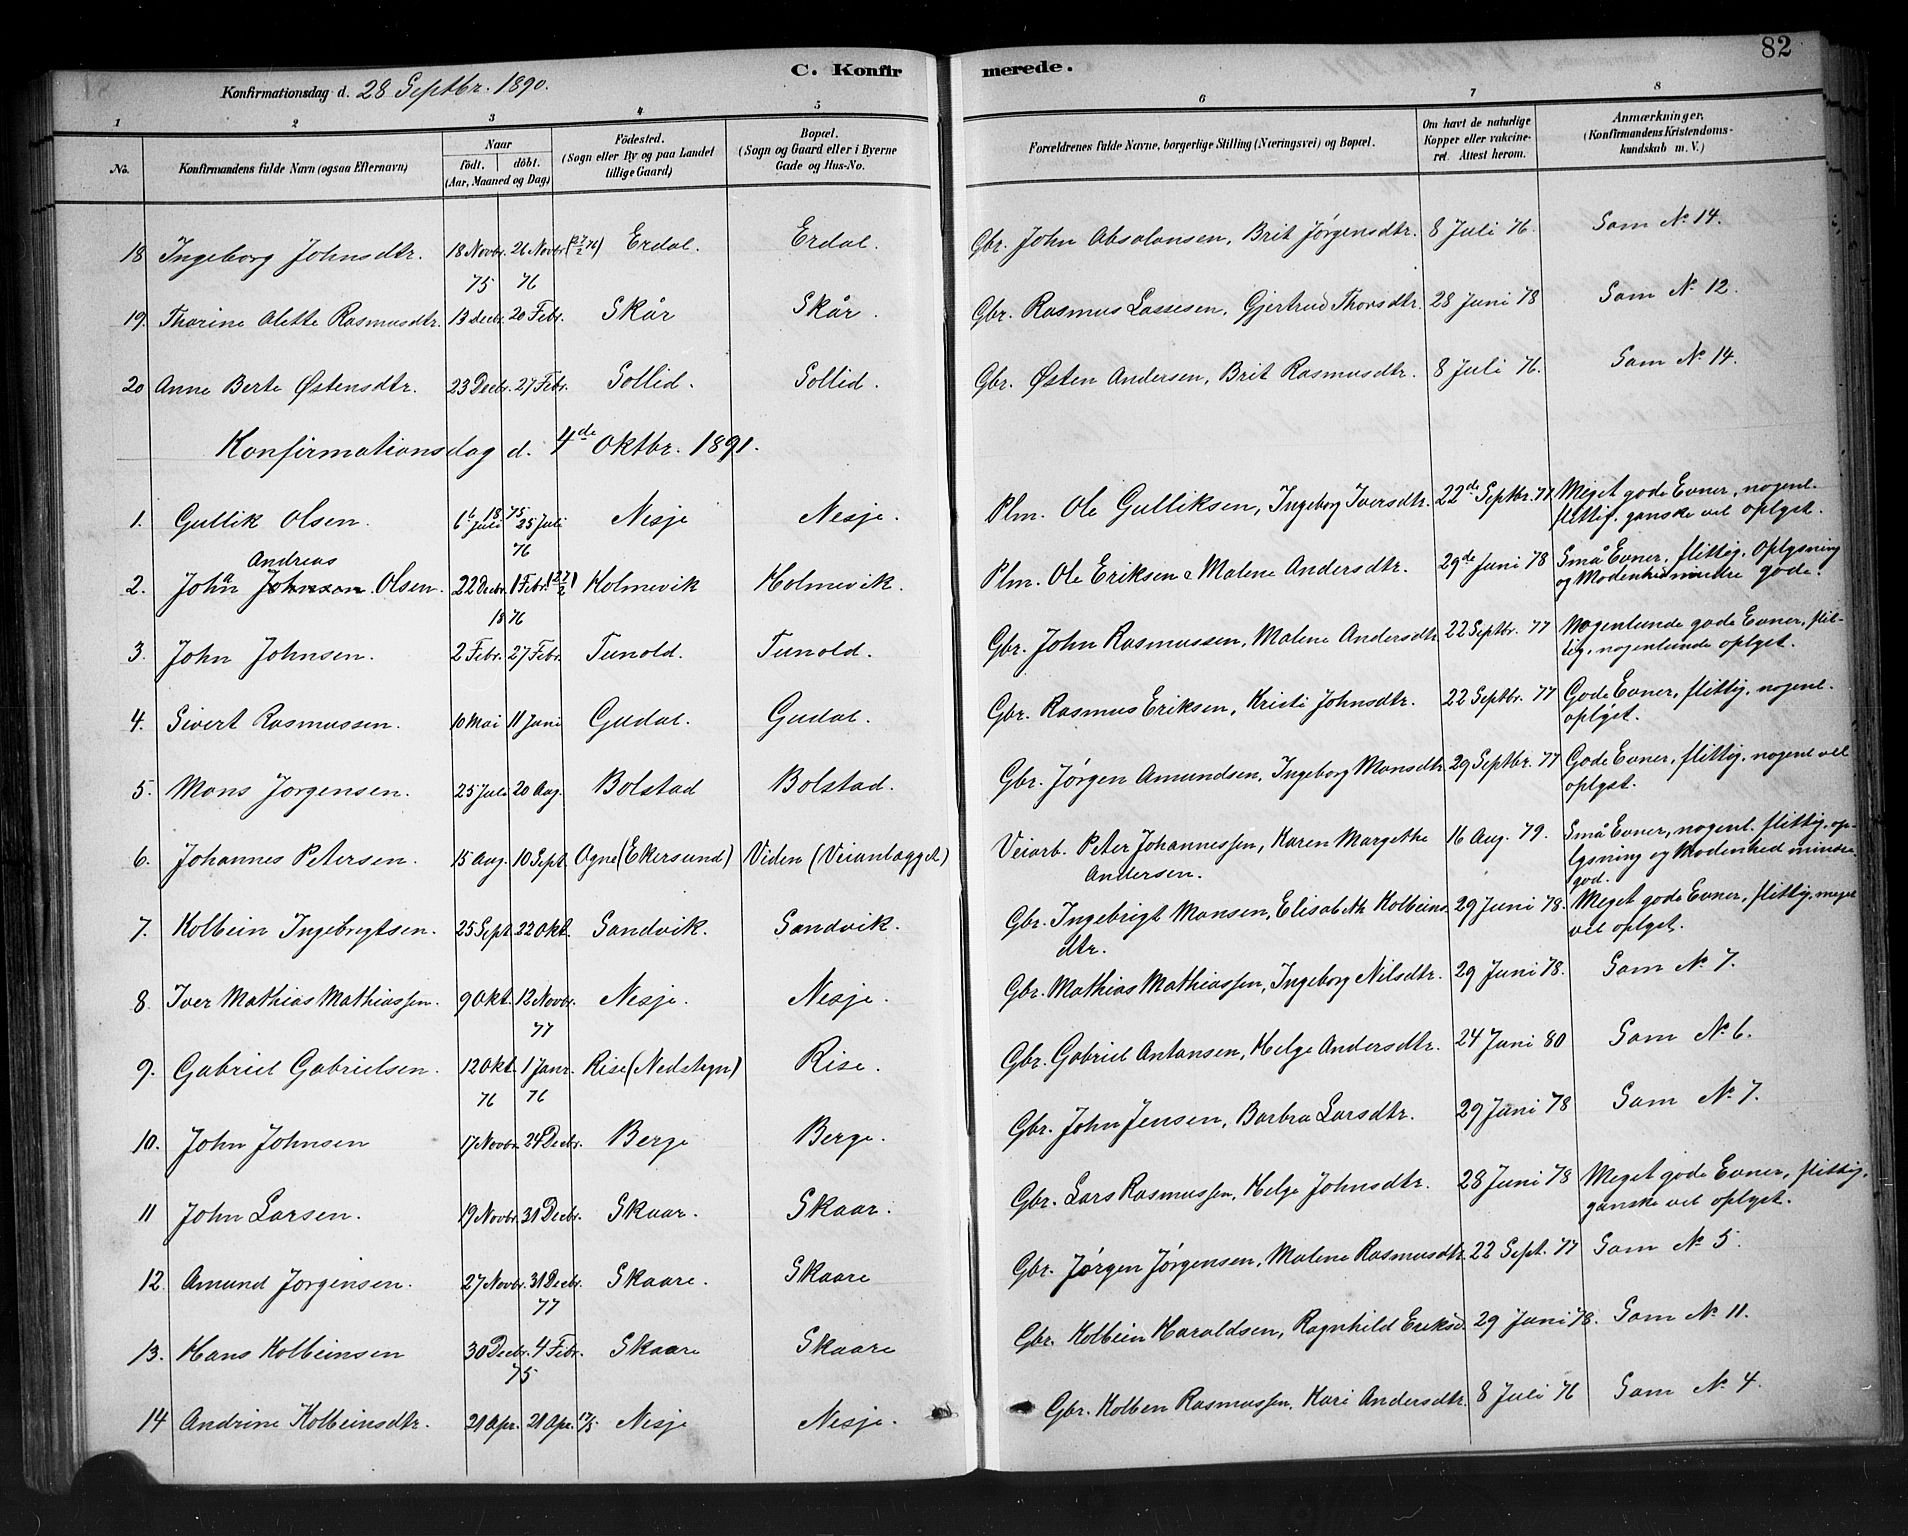 82
C. Konfirmerede.
Konfirmationsdag d. 28 Septbr. 1890.
1 2 3 4 5 6 7 8
No. Konfirmandens fulde Navn (ogsaa Efternavn) Naar født, døbt. (Aar, Maaned og Dag) Fødested. (Sogn eller By og paa Landet tillige Gaard) Bopæl. (Sogn og Gaard eller i Byerne Gade og Hus-No. Forældrenes fulde Navne, borgerlige Stilling (Næringsvei) og Bopæl. Om havt de naturlige Kopper eller vakcineret. Attest herom. Anmærkninger, (Konfirmandens Kristendomskundskab m. V.)
18 Ingeborg Johnsdtr. 18 Novbr. 26 Novbr (27/2 76) Erdal. Erdal. Gbr. John Absalonsen, Brit Jørgensdtr. 8 Juli 76. Som No 14.
75 76
19. Thorine Olette Rasmusdtr. 13 Decbr. 20 Febr. Skår Skår. Gbr. Rasmus Lassesen, Gjertrud Thorsdtr. 28 Juni 78 Som No 12.
20 Anne Berte Østensdtr. 23 Decbr. 27 Febr. Sollid. Sollid. Gbr. Østen Andersen, Brit Rasmusdtr. 8 Juli 76. Som No 14.
Konfirmationsdag d. 4de Oktbr. 1891.
18 75
1. Gullik Olsen. 6t Juli 25 Juli Nesje Nesje. Plm. Ole Gulliksen, Ingeborg Iversdtr. 22de Septbr. 77 Meget gode Evner, nogenl. flittig. ganske vel oplyst.
76
Andreas
2. Johan Johnson Olsen. 22 Decbr. 1 Febr. (27/2) Holmevik Holmevik. Plm. Ole Eriksen & Malene Andersdtr. 29de Juni 78 Små Evner, flittig. Oplysning og Modenhed mindre gode.
18 76
3. John Johnsen. 2 Febr. 27 Febr. Tunold. Tunold. Gbr. John Rasmussen, Malene Andersdtr 22 Septbr. 77 Nogenlunde gode Evner, flittig, nogenlunde oplyst.
4. Sivert Rasmussen. 10 Mai 11 Juni Gudal. Gudal. Gbr. Rasmus Eriksen, Kristi Johnsdtr. 22 Septbr. 77 Gode Evner, flittig, nogenl. oplyst.
5. Mons Jørgensen. 25 Juli 20 Aug. Bolstad Bolstad. Gbr. Jørgen Amundsen, Ingeborg Monsdtr. 29 Septbr. 77 Gode Evner, flittig, nogenl vel oplyst.
6. Johannes Petersen. 15 Aug. 10 Sept. Ogne (Ekersund) Viden (Veianlægget) Veiarb. Peter Johannessen, Karen Margethe Andersen. 16 Aug. 79. Små Evner, nogenl. flittig. oplysning og Modenhed mindre god.
7. Kolbein Ingebrigtsen. 25 Sept 22 Okt. Sandvik. Sandvik. Gbr. Ingebrigt Monsen, Elisabeth Kolbeinsdtr. 29 Juni 78. Meget gode Evner, flittig, meget vel oplyst.
8. Iver Mathias Mathiassen. 9 Okt. 12 Novbr. Nesje. Nesje. Gbr. Mathias Mathiassen, Ingeborg Nilsdtr. 29 Juni 78. Som No 7.
77
9. Gabriel Gabrielsen. 12 Okt. 1 Janr. Rise (Nedstryn) Rise. Gbr. Gabriel Antonsen, Helge Andersdtr. 24 Juni 80 Som No 6.
76 76
10. John Johnsen 17 Novbr. 24 Decbr. Berge Berge. Gbr. John Jensen, Barbra Larsdtr. 29 Juni 78 Som No 7.
11 John Larsen. 19 Novbr. 31 Decbr. Skaar. Skaar. Gbr. Lars Rasmussen, Helge Johnsdtr. 28 Juni 78 Meget gode Evner, flittig, ganske vel oplyst.
12. Amund Jørgensen. 27 Novbr. 31 Decbr. Skaare. Skaare Gbr. Jørgen Jørgensen, Malene Rasmusdtr. 22 Sept. 77 Som No 5.
77
13. Hans Kolbeinsen 30 Decbr. 4 Febr. Skaare Skaare Gbr. Kolbein Haraldsen, Ragnhild Eriksd. 29 Juni 78. Som No 11.
75
14 Andrine Kolbeinsdtr. 21 Apr. 21 Apr. Nesje Nesje. Gbr. Kolben Rasmussen, Kari Andersdtr. 8 Juli 76 Som No 4.